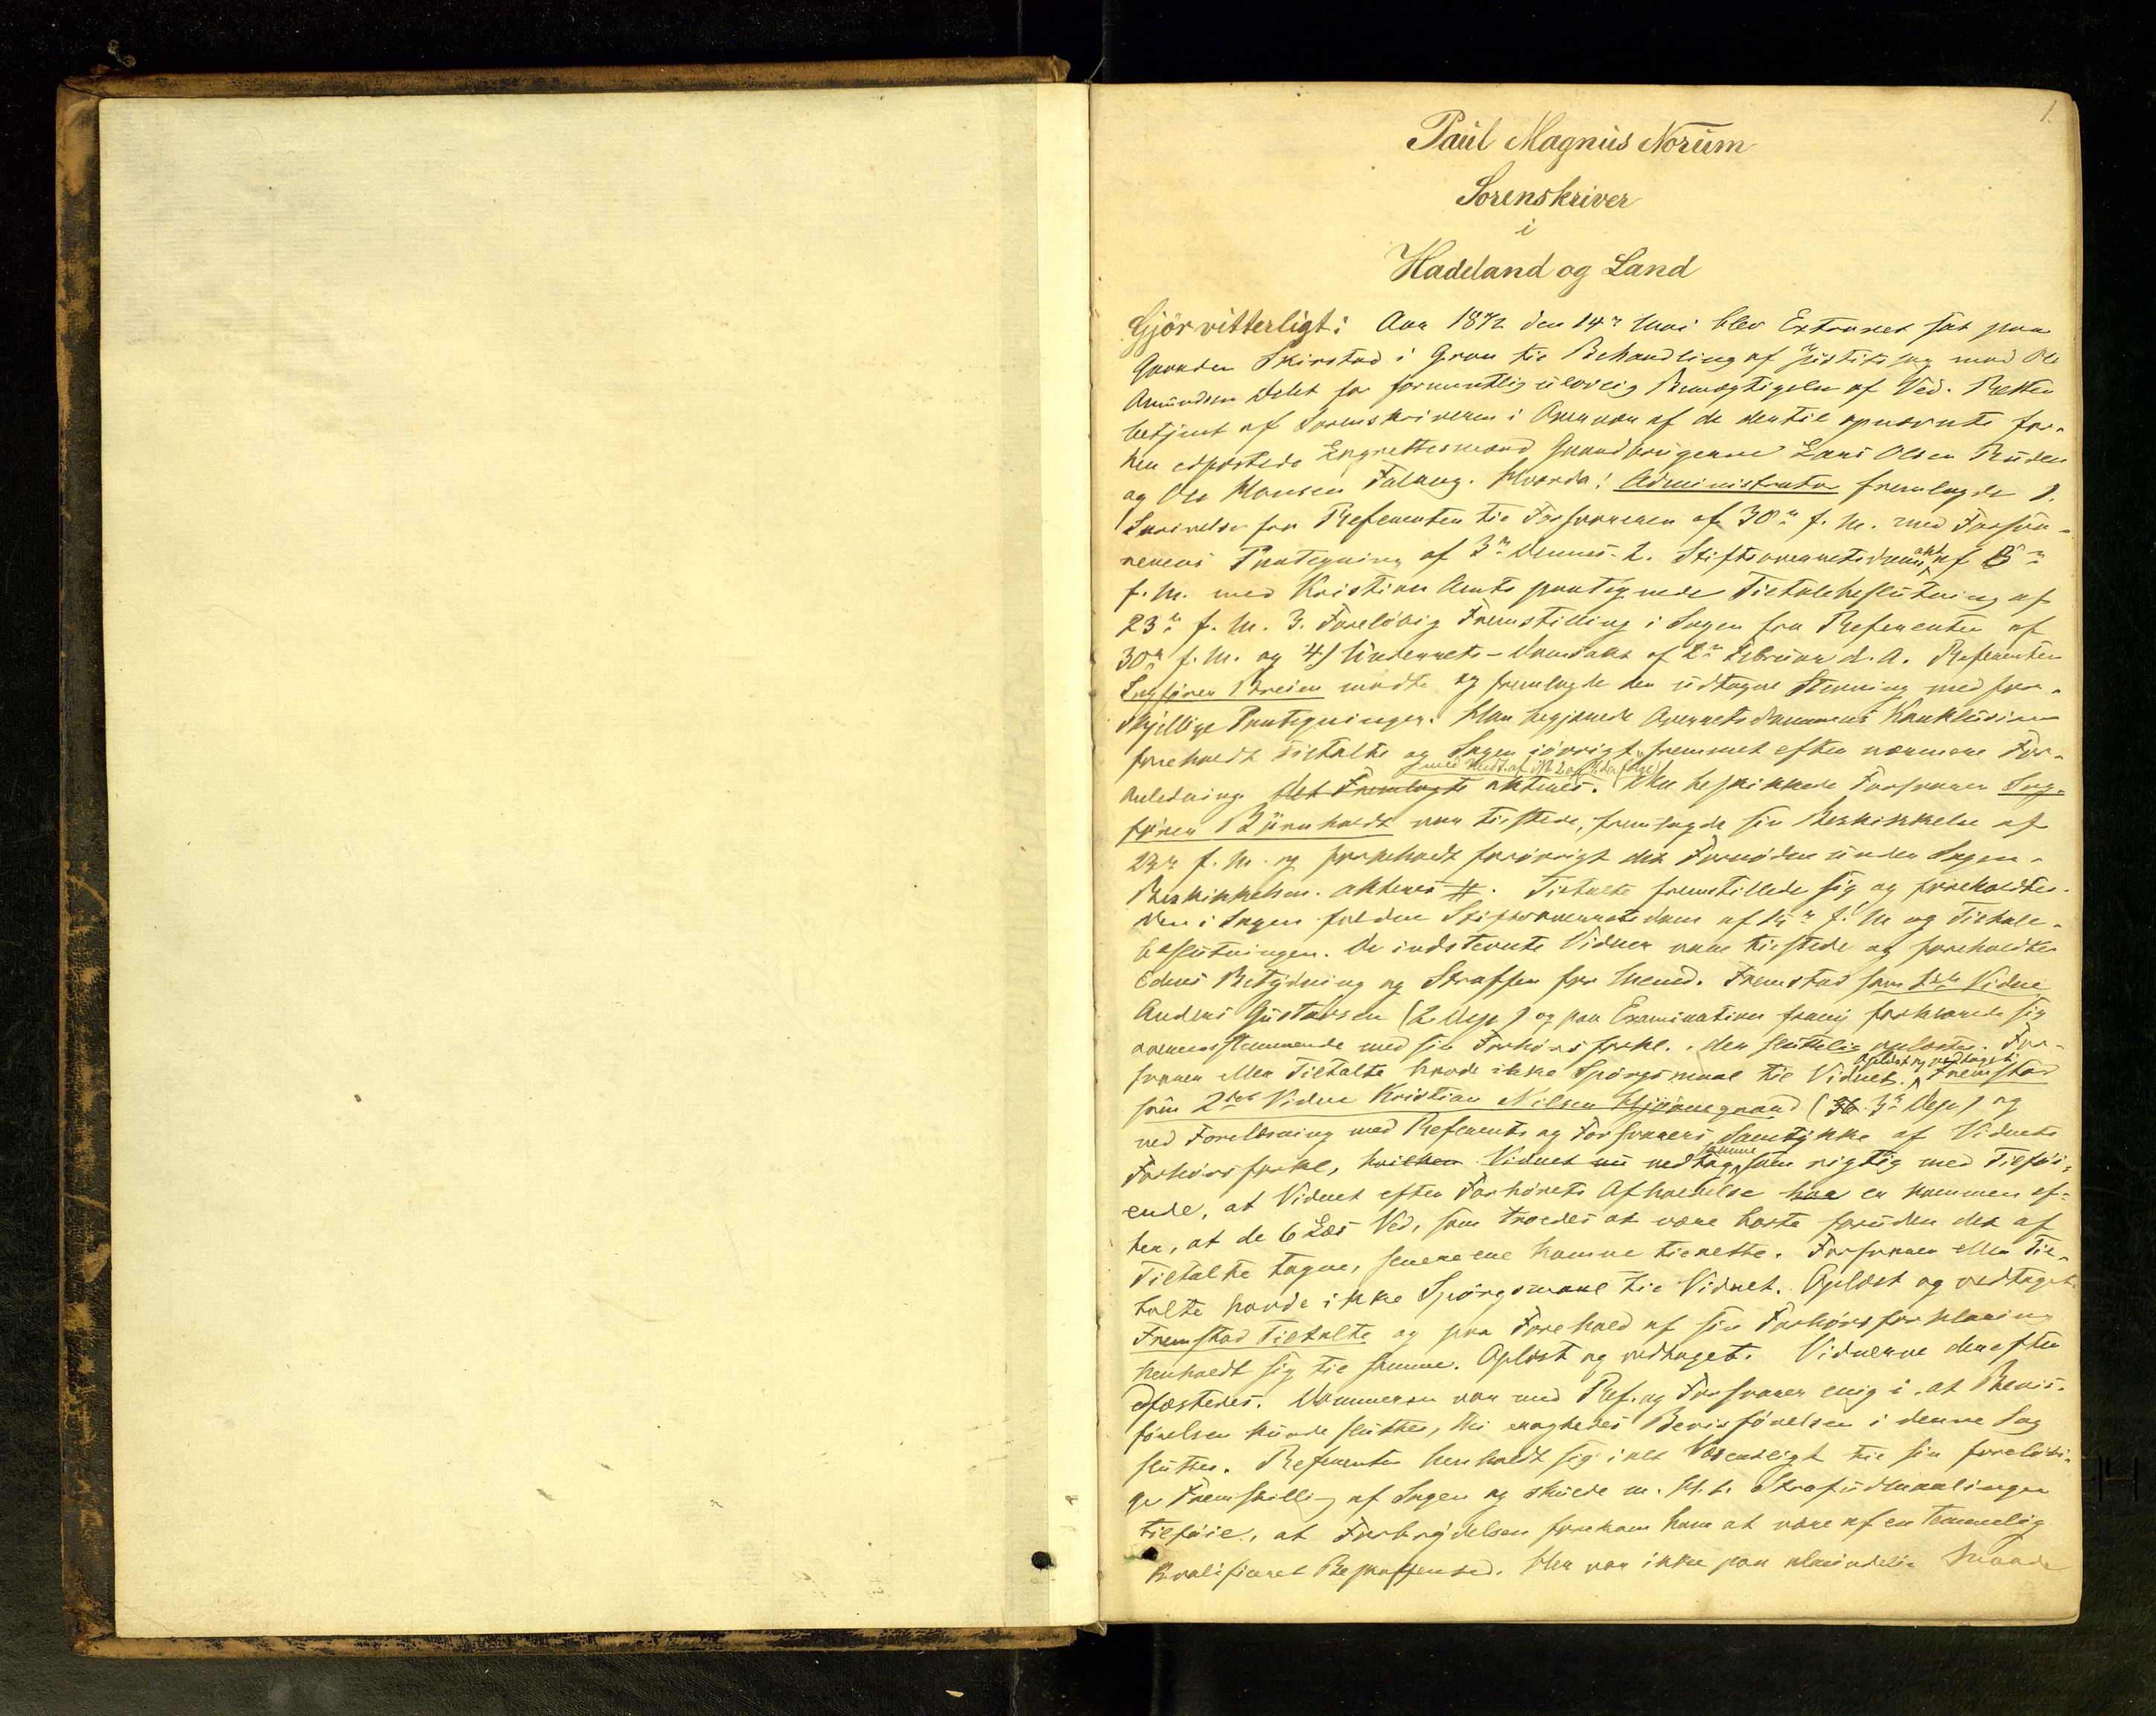 1.
Paul Magnus Norum
Sorenskriver
i
Hadeland og Land
Gjör vitterligt: Aar 1872 den 14de Mai blev Extraret sat paa
Gaarden Skirstad i Gran til Behandling af Justitssag mod Ole
Amundsen for formentlig ulovlig Bemægtigelse af Ved. Retten
betjent af Sorenskriveren i Overvær af de dertil opnævnte for-
hen edfæstede Laugrettesmænd Gaardbrugerne Lars Olsen Ruden
og Ole Hansen Falang. Hvorda: Administrator fremlagde 1.
Skrivelse fra Referenten til Forsvareren af 30te f. M. med Forsva-
rerens Paategning af 3de dennes. 2. Stiftsoverretsdomsakt af
f. M. med Kristian Amts paategnede Tiltalebeslutning af
23de f. M. 3. Foreløbig Fremstilling i Sagen fra Referenten af
30te f. M. og 4) Underrets-Domsakt af 2den Februar d. A. Referenten
Sagfører Breien mødte og fremlagde den udtagne Stevning med for-
skjellige Paategninger. Han begjærede Overretsdommens Konklusion
foreholdt Tiltalte og Sagen iøvrigt fremmet efter nærmere For-
anledning. det Fremlagte akteres. Den beskikkede Forsvarer Sag-
fører Bjørnholdt var tilstede, fremlagde sin Beskikkelse af
23de f. M. og forbeholdt forøvrigt det Fornødne under Sagen.
Beskikkelsen akteres #. Tiltalte fremstillede sig og foreholdtes
den i Sagen faldne Stiftsoverretsdom af f. M og Tiltale-
beslutningen. De indstevnte Vidner vare tilstede og foreholdtes
Edens Betydning og Straffen for Mened. Fremstod som 1ste Vidne
Anders Gustavsen (2 Dep) og paa Examination forklarede sig
overensstemmende med sin Forhørsforkl., der sluttelig oplæstes. For-
svarer eller Tiltalte havde ikke Spørgsmaal til Vidnet. Oplæst og vedtaget. Fremstod
som 2det Vidne Kristian Nilsen (3de Dep) og
ved Forelæsning med Referents og Forsvarers Samtykke af Vidnets
Forhørsforkl, hvilken Vidnet nu vedtog samme som rigtig med Tilføi-
ende, at Vidnet efter Forhørets Afholdelse har er kommen ef-
ter, at de 6 Læs Ved, som troedes at være borte foruden det af
Tiltalte tagne, senere ere komne tilrette. Forsvarer eller Til-
talte havde ikke Spørgsmaal til Vidnet. Oplæst og vedtaget.
Fremstod Tiltalte og paa Forehold af sin Forhørsforklaring
henholdt sig til samme. Oplæst og vedtaget. Vidnerne derefter
edfæstedes. Dommeren var med Ref. og Forsvarer enig i, at Bevis-
førelsen kunde sluttes, thi eragtedes Bevisførelsen i denne Sag
sluttet. Referenten henholdt sig i alt Væsentligt til sin foreløbi-
ge Fremstilling af Sagen og skulde m. H. t. Strafudmaalingen
tilføie, at Forbrydelsen forekom ham at være af en temmelig
kvalificeret Beskaffenhed. Her var ikke paa almindelig Maade